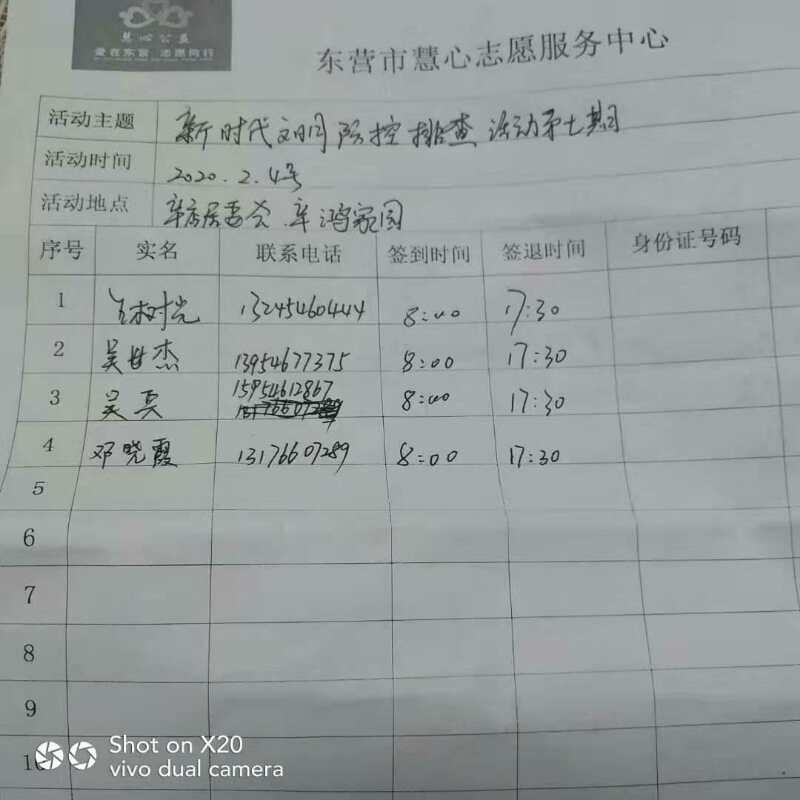 慧心公益
爱在东营 志愿同行
东营市慧心志愿服务中心
活动主题 新时代文明 防控排查 活动第七期
活动时间 2020.2.4号
活动地点 辛店居委会.辛鸿家园
序号 实名 联系电话 签到时间 签退时间 身份证号码
1 树光 13245460444 8:00 17:30
2 吴世杰 13954677375 8:00 17:30
3 吴真 15954612867 8:00 17:30
4 邓晓霞 13176607289 8:00 17:30
5
6
7
8
9
10
Shot on X20
vivo dual camera